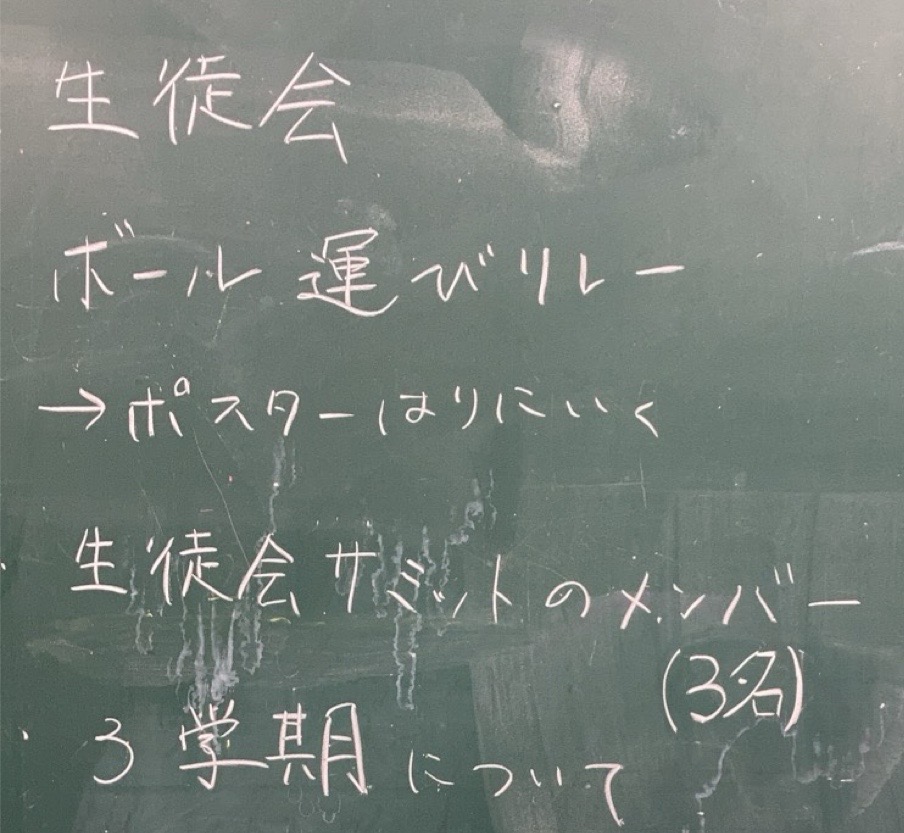 生徒会
ボール運びリレー
→ポスターはりにいく
・生徒会サミットのメンバー
(3名)
・3学期について